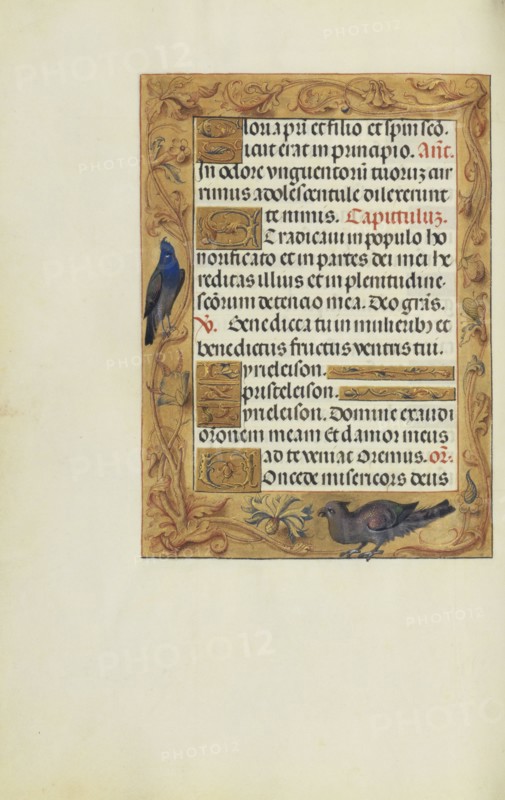 Gloria pri et filio et spiri scō.
Sicut erat in principio. Añc.
In odore vnguentorū tuorū cur
rimus adolescentule dilexerunt
te nimis. Capitulūz.
Et radicaui in populo ho
norificato et in partes dei mei he
reditas illius et in plenitudine
scōrum detencio mea. Deo grās.
V̄. Benedicta tu in mulieribꝫ et
benedictus fructus ventris tui.
Kyrieleison.
Christeleison.
Kyrieleison. Domine exaudi
orōnem meam Et clamor meus
ad te veniat Oremus. or̄.
Concede misericors deus
PHOTO12